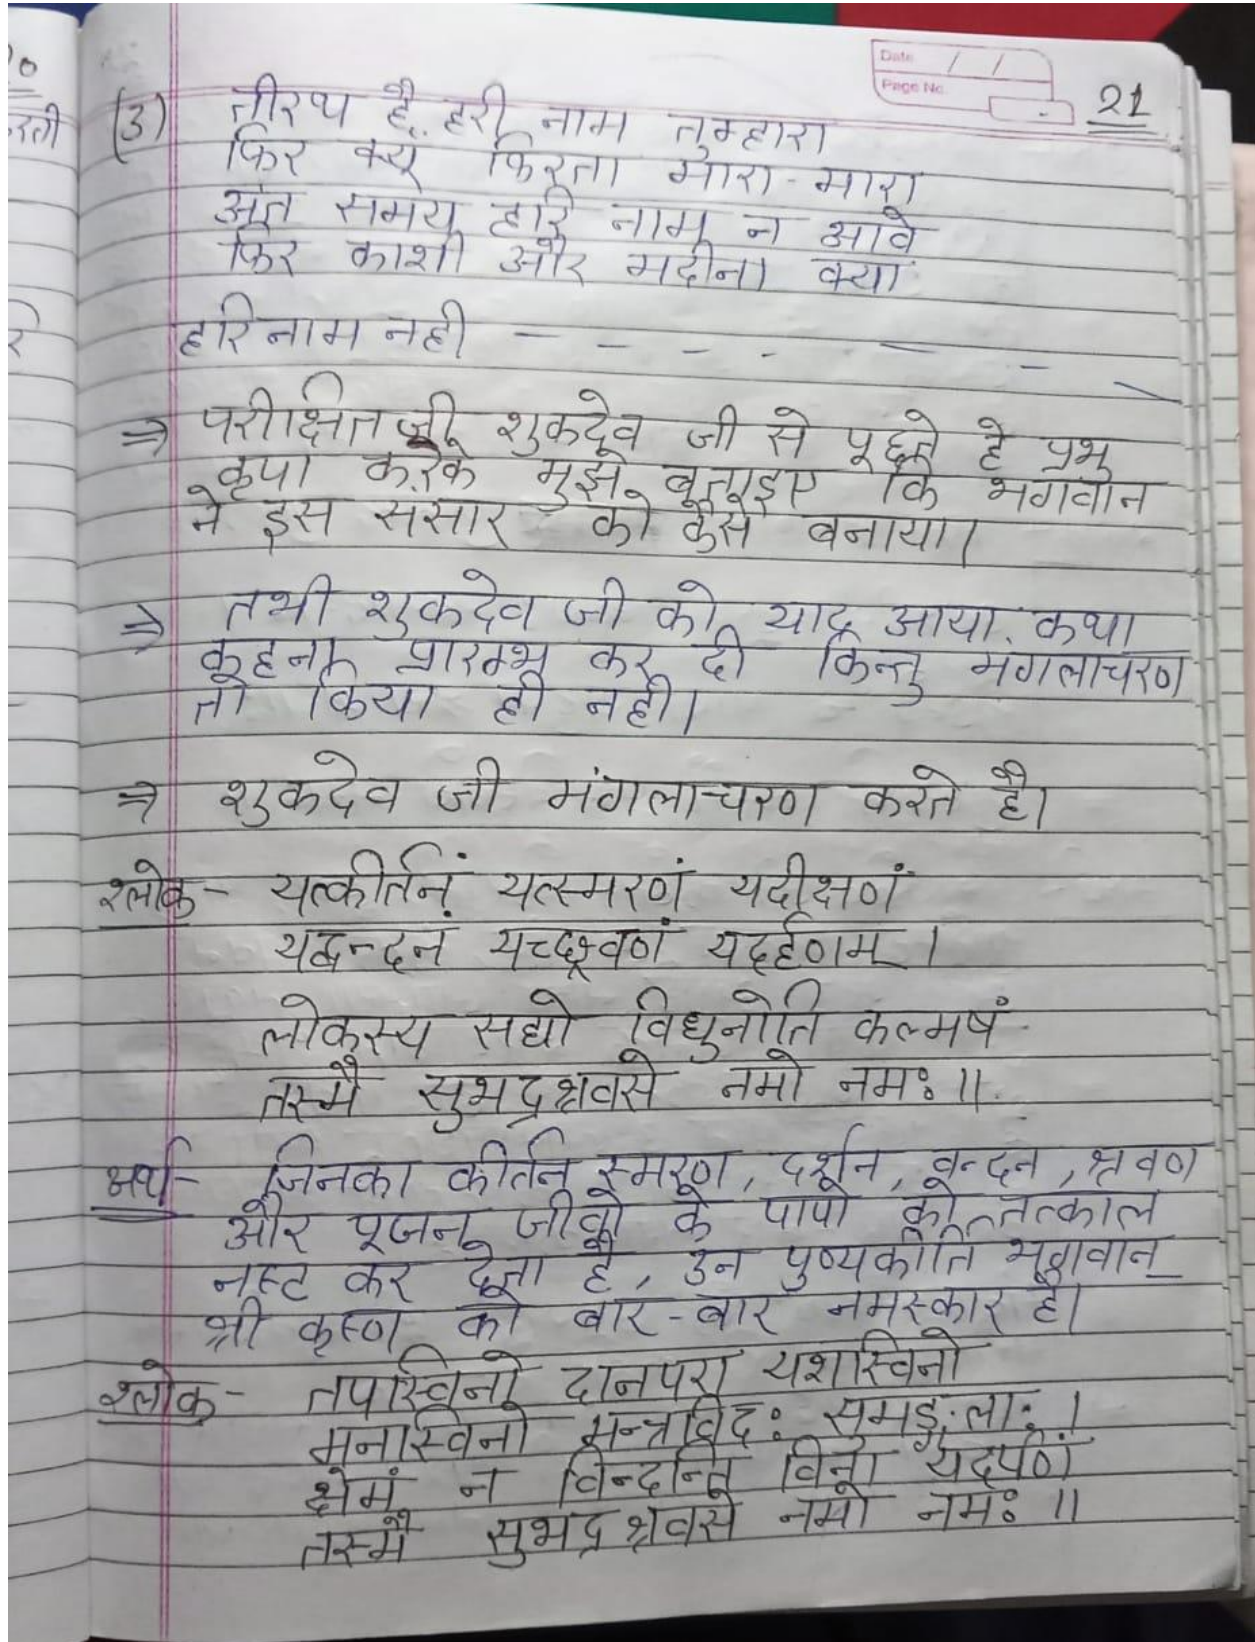 Date / /
Page No.
21
(3) तीरथ है हरी नाम तुम्हारा
फिर क्यू फिरता मारा-मारा
अंत समय हरि नाम न आवे
फिर काशी और मदीना क्या
हरि नाम नही - - - - - - -
⇒ परीक्षित जी शुकदेव जी से पूछते हे प्रभु
कृपा करके मुझे बताइए कि भगवान
ने इस संसार को कैसे बनाया।
⇒ तभी शुकदेव जी को याद आया. कथा
कहना प्रारम्भ कर दी किन्तु मंगलाचरण
तो किया ही नही।
⇒ शुकदेव जी मंगलाचरण करते है।
श्लोक - यत्कीर्तनं यत्स्मरणं यदीक्षणं
यद्वन्दनं यच्छ्रवणं यदर्हणम्।
लोकस्य सद्यो विधुनोति कल्मषं
तस्मै सुभद्रश्रवसे नमो नमः॥
अर्थ - जिनका कीर्तन स्मरण, दर्शन, वन्दन, श्रवण
और पूजन जीवो के पापो को तत्काल
नष्ट कर देता है, उन पुण्यकीर्ति भगवान्
श्री कृष्ण को बार-बार नमस्कार है।
श्लोक - तपस्विनो दानपरा यशस्विनो
मनस्विनो मन्त्रविदः सुमङ्गलाः।
क्षेमं न विन्दन्ति विना यदर्पणं
तस्मै सुभद्रश्रवसे नमो नमः॥